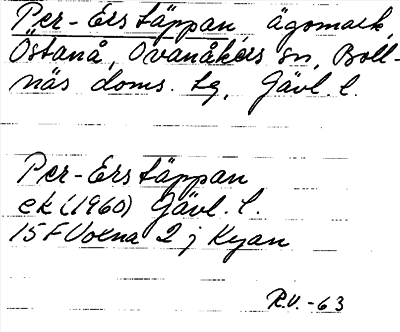 Per-Ers täppan, ägomark,
Östanå, Ovanåkers sn, Boll-
näs doms. tg, Gävl. l.
Per-Ers täppan
ek (1960) Gävl. l.
15F Voxna 2 j Kyan
R.V. -63